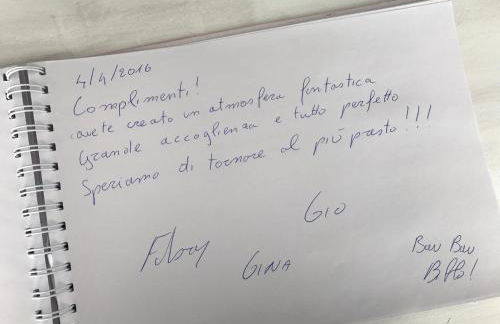 4/4/2016
Complimenti!
avete creato un atmosfera fantastica
Grande accoglienza e tutto perfetto
Speriamo di tornare al più presto!!!
GIO
GINA
Bau Bau